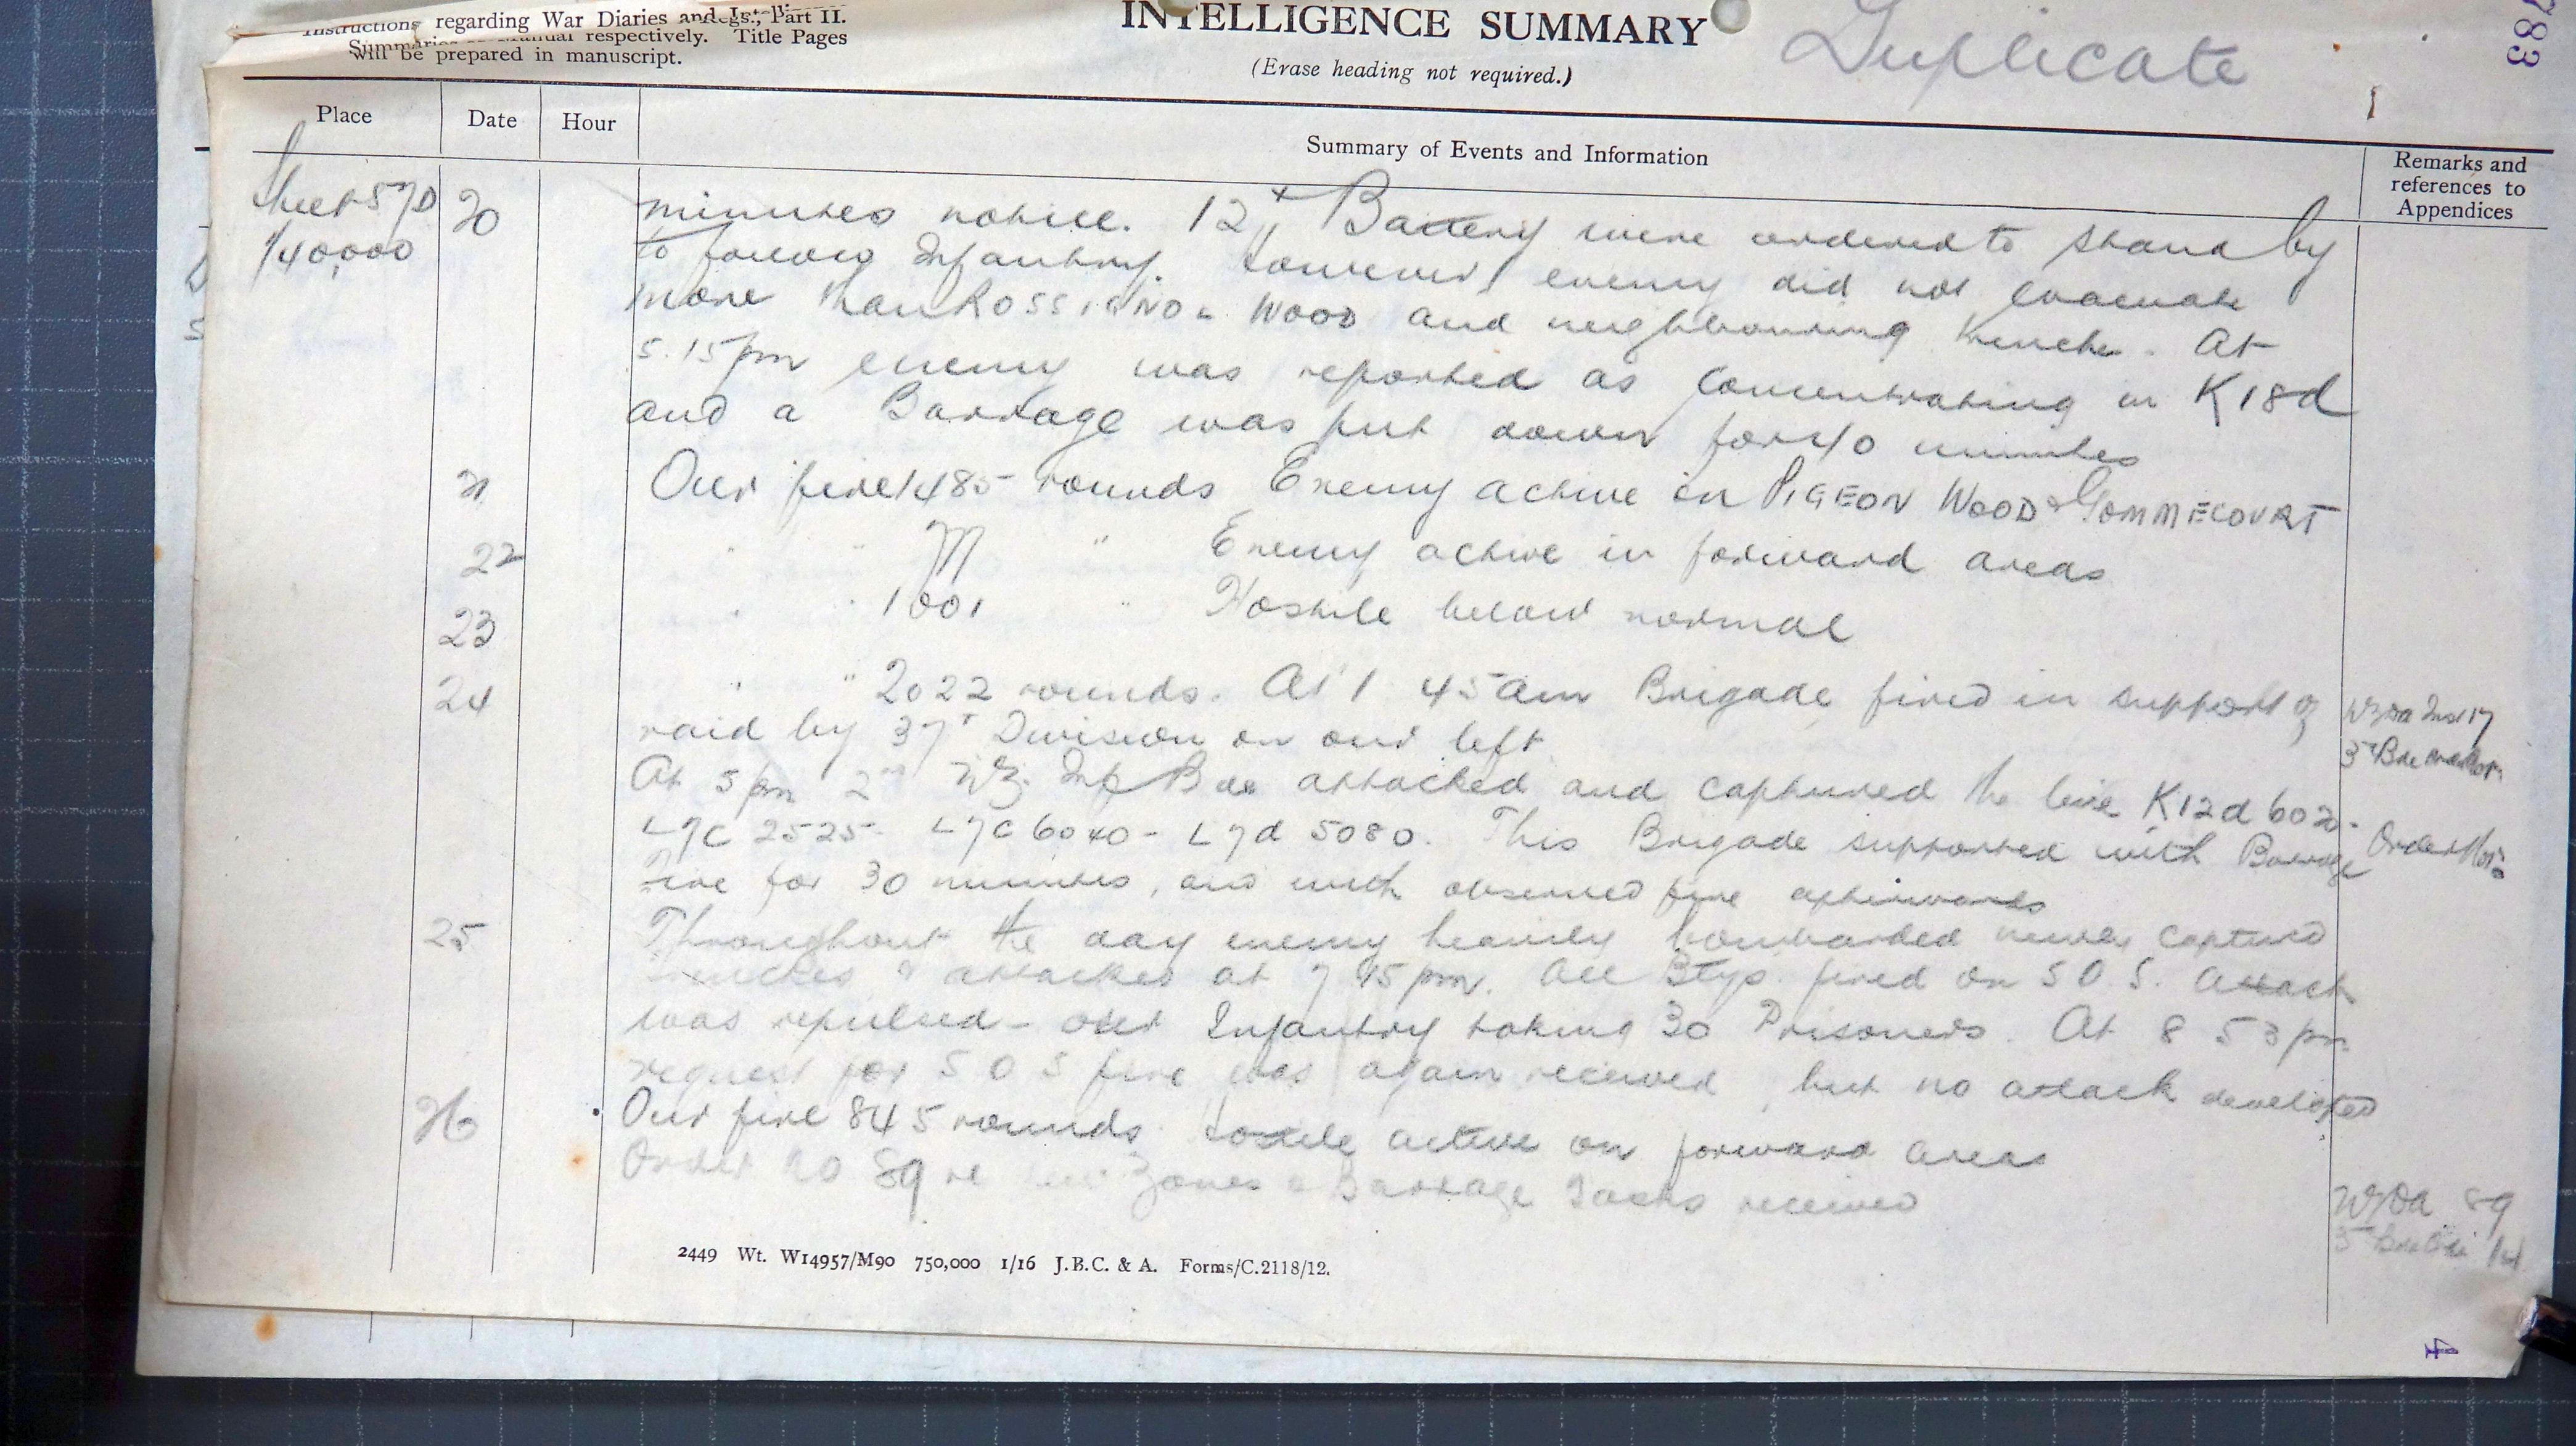 Instructions regarding War Diaries and Part II.
Summaries Manual respectively. Title Pages
will be prepared in manuscript.
INTELLIGENCE SUMMARY
(Erase heading not required.)
Duplicate
783
Place Date Hour Summary of Events and Information Remarks and references to Appendices
Sheet 57D 20 minutes notice. 12th Battery were ordered to stand by
1/40,000 to follow Infantry. However enemy did not evacuate
more than ROSSIGNOL WOOD and neighbouring trenches. At
5.15pm enemy was reported as concentrating in K18d
and a Barrage was put down for 40 minutes
21 Our fire 1485 rounds Enemy active in PIGEON WOOD & GOMMECOURT
22 " " 777 " Enemy active in forward areas
23 " " 1001 " Hostile below normal
24 " " 2022 rounds. At 1 45am Brigade fired in support of
raid by 37th Division on our left
At 5pm 2nd NZ. Inf Bde attacked and captured the line K12d 6020-
L7C 2525- L7C 6040 - L7d 5080. This Brigade supported with Barrage
Fire for 30 minutes, and with observed fire afterwards
25 Throughout the day enemy heavily bombarded newly captured
trenches & attacked at 7 15pm. All Btys. fired on S O S. Attack
was repulsed - our Infantry taking 30 Prisoners. At 8 53pm
request for S O S fire was again received, but no attack developed
26 Our fire 845 rounds. Hostile active on forward areas
Order No 89 re new Zones & Barrage Tasks received
NZDA 17
3rd Bde
Order No:
NZDA 89
3rd Bde
2449 Wt. W14957/M90 750,000 1/16 J.B.C. & A. Forms/C.2118/12.
4